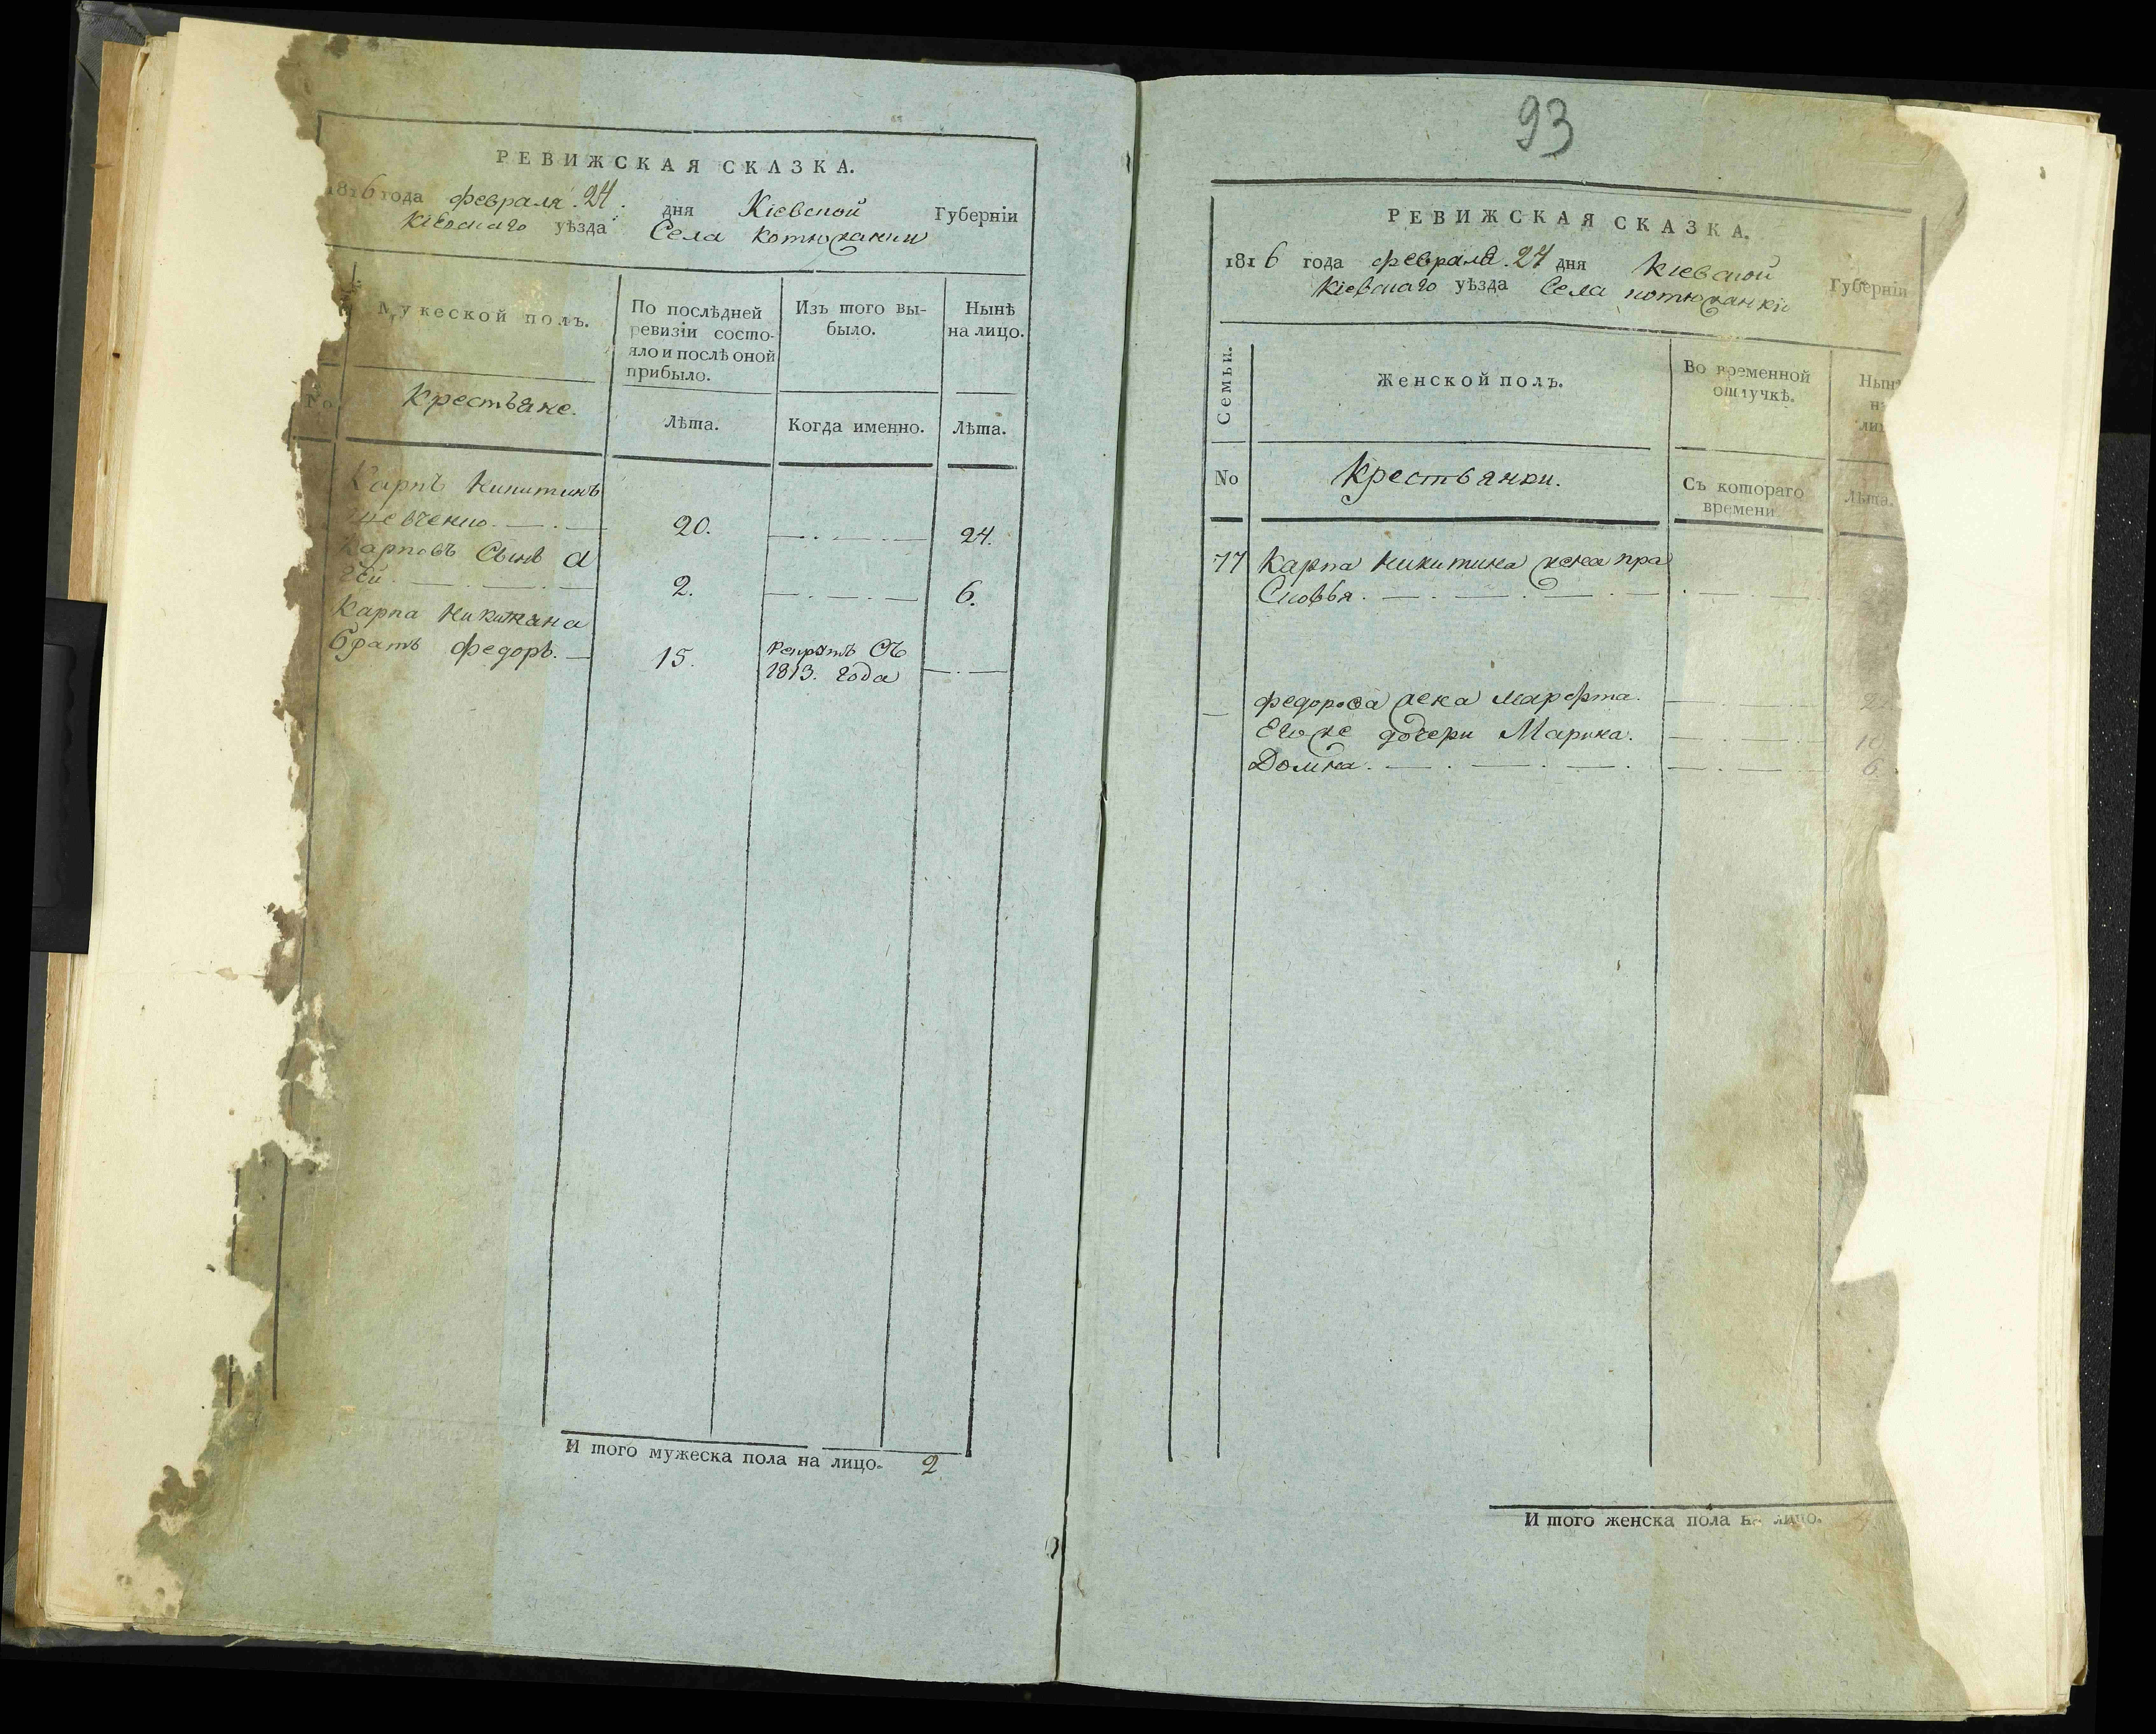 РЕВИЖСКАЯ СКАЗКА.
1816 года февраля 24. дня Кіевской Губерніи
Кіевскаго уѣзда Села Котюжанки
Мужеской полъ.
По послѣдней ревизіи состо-
яло и послѣ оной
прибыло.
Изъ того вы-
было.
Нынѣ
на лицо.
No
Крестьяне.
Лѣта.
Когда именно.
Лѣта.
Карпъ Никитинъ
Шевченко. 20. 24.
Карповъ Сынъ
2. 6.
Карпа Никитина
братъ Федоръ. 15. Рекрутъ Съ
1813. года
И того мужеска пола на лицо. 2
93
РЕВИЖСКАЯ СКАЗКА.
1816 года февраля 24 дня Кіевской Губерніи
Кіевскаго уѣзда Села Котюжанки
Семьи.
Женской полъ.
Во временной
отлучкѣ.
Нынѣ
No
Крестьянки.
Съ котораго
времени
Лѣта.
77 Карпа Никитина жена пра
сковья.
Федорова жена Марфта. 22
Его же дочери Марина. 10
Домна. 6.
И того женска пола на лицо.